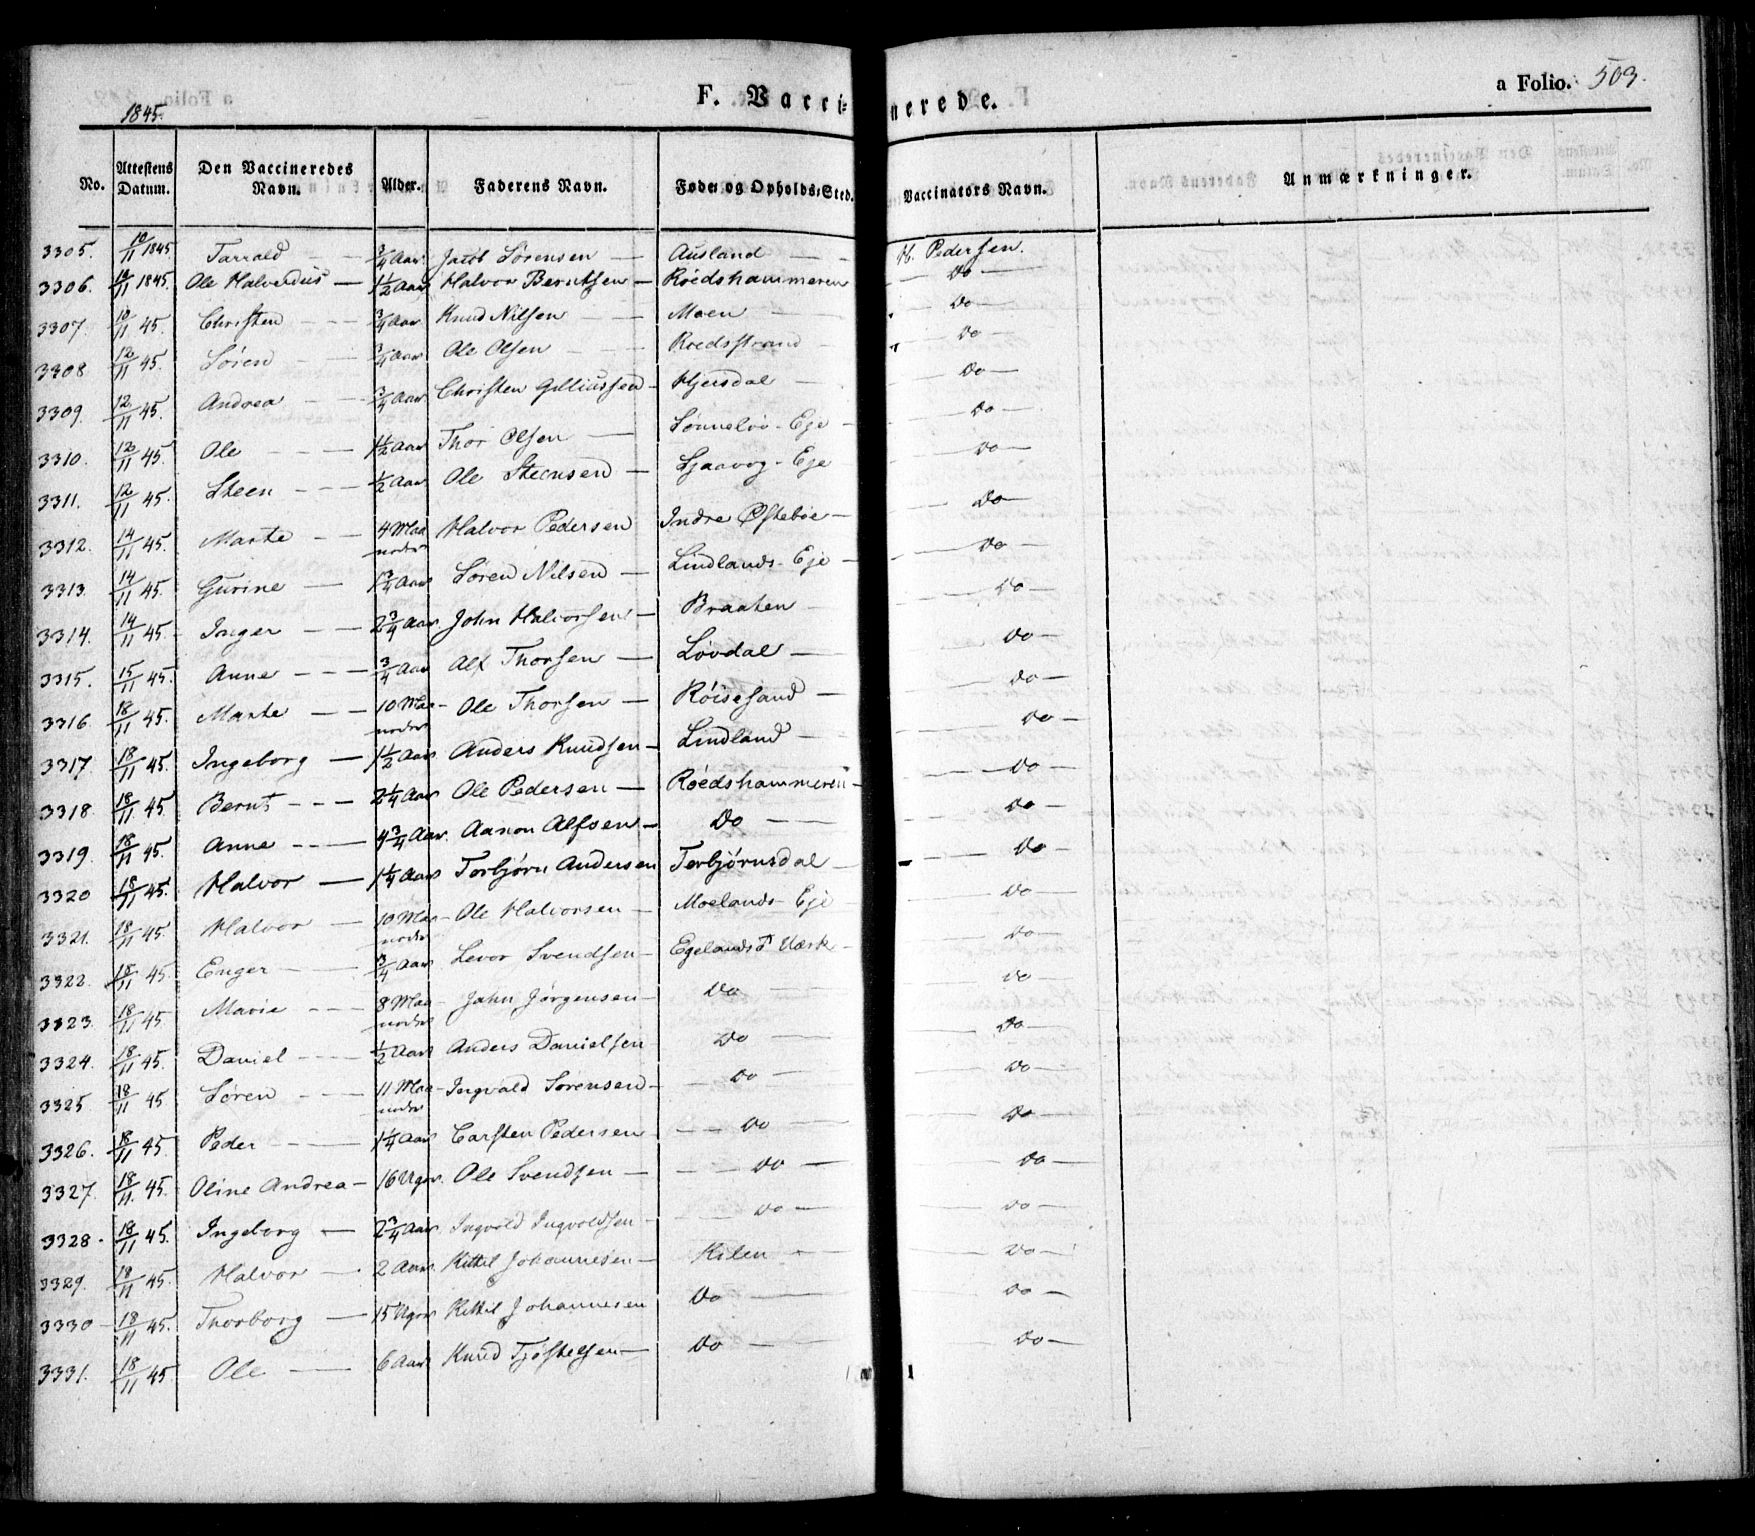 a Folio. 503.
F. Vaccinerede.
1845.
No. Attestens Datum. Den Vaccineredes Navn. Alder. Faderens Navn. Føde- og Opholds-Sted. Vaccinators Navn. Anmærkninger.
3305. 10/11 1845. Tarrald 3/4 Aar Jacob Sørensen Ausland H. Pedersen.
3306. 10/11 1845. Ole Halvordus 1 1/2 Aar Halvor Berntsen Röedshammeren Do
3307. 10/11 45. Christen 3/4 Aar Knud Nilsen Moen Do
3308 12/11 45. Sören 3/4 Aar Ole Olsen Roedsstrand Do
3309. 12/11 45. Andrea 3/4 Aar Christen Gilliussen Hjersdal Do
3310. 12/11 45. Ole 1 1/2 Aar Thor Olsen Sønneløv-Eje Do
3311. 12/11 45. Steen 1/2 Aar Ole Steensen Sjaavog-Eje Do
3312. 14/11 45. Marte 4 Maaneder Halvor Pedersen Indre Østeböe Do
3313. 14/11 45. Gurine 1 3/4 Aar Sören Nilsen Lindlands-Eje Do
3314. 14/11 45. Inger 2 3/4 Aar John Halvorsen Braaten Do
3315. 15/11 45. Anne 3/4 Aar Alf Thorsen Lövdal Do
3316. 18/11 45. Marte 10 Maaneder Ole Thorsen Röisesand Do
3317. 18/11 45. Ingeborg 1 1/2 Aar Anders Knudsen Lindland Do
3318. 18/11 45. Bernt 2 1/4 Aar Ole Pedersen Röedshammeren Do
3319. 18/11 45. Anne 4 3/4 Aar. Aanon Alfsen Do Do
3320 18/11 45. Halvor 1 1/4 Aar Torbjørn Andersen Torbjørnsdal Do
3321. 18/11 45. Halvor 10 Maaneder Ole Halvorsen Moelands-Eje Do
3322. 18/11 45 Enger 3/4 Aar Levor Svendsen Egelands Værk Do
3323. 18/11 45. Marie 8 Maaneder John Jörgensen Do Do
3324. 18/11 45. Daniel 1/2 Aar Anders Danielsen Do Do
3325 18/11 45 Sören 11 Maaneder Ingvald Sörensen Do Do
3326. 18/11 45. Peder 1 1/4 Aar Carsten Pedersen Do Do
3327. 18/11 45. Oline Andrea 16 Uger Ole Svendsen Do Do
3328. 18/11 45. Ingeborg 2 3/4 Aar Ingvold Ingvoldsen Do Do
3329. 18/11 45. Halvor 2 Aar Kittil Johannesen Kilen Do
3330 18/11 45. Thorborg 15 Uger Kittil Johannesen Do Do
3331. 18/11 45 Ole 6 Aar Knud Tjöstelsen Do Do